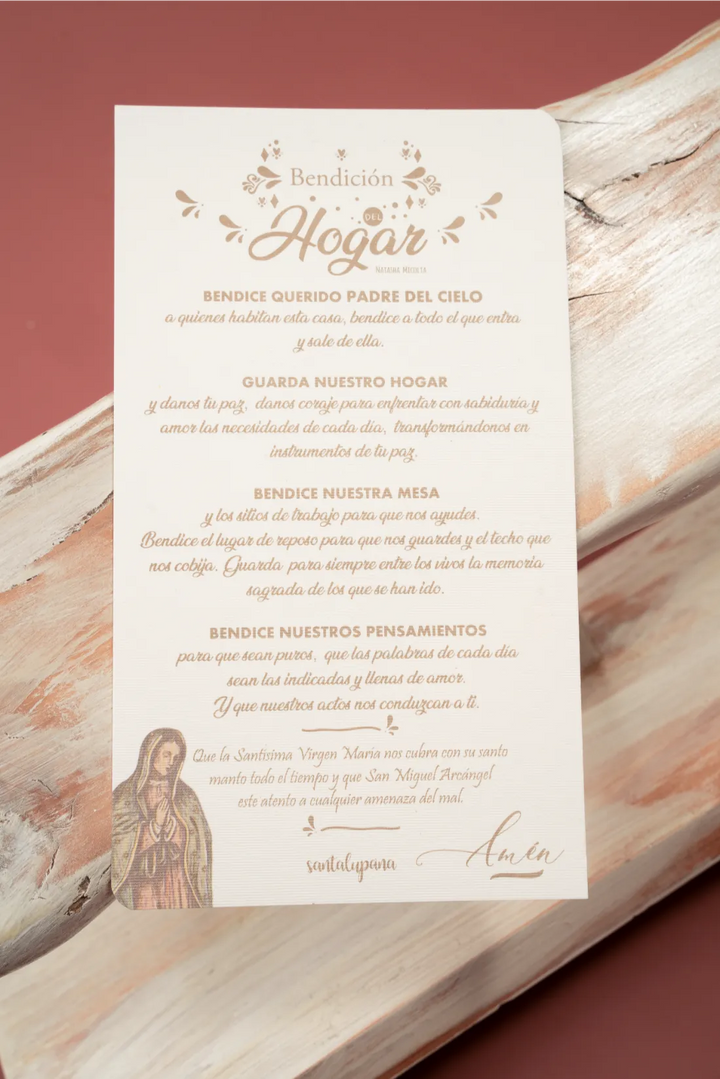 Bendición
DEL
Hogar
NATASHA MIDUETA
BENDICE QUERIDO PADRE DEL CIELO
a quienes habitan esta casa, bendice a todo el que entra
y sale de ella.
GUARDA NUESTRO HOGAR
y danos tu paz, danos coraje para enfrentar con sabiduría y
amor las necesidades de cada día, transformándonos en
instrumentos de tu paz.
BENDICE NUESTRA MESA
y los sitios de trabajo para que nos ayudes.
Bendice el lugar de reposo para que nos guardes y el techo que
nos cobija. Guarda para siempre entre los vivos la memoria
sagrada de los que se han ido.
BENDICE NUESTROS PENSAMIENTOS
para que sean puros, que las palabras de cada día
sean las indicadas y llenas de amor.
Y que nuestros actos nos conduzcan a ti.
Que la Santísima Virgen María nos cubra con su santo
manto todo el tiempo y que San Miguel Arcángel
este atento a cualquier amenaza del mal.
santalupana
Amén